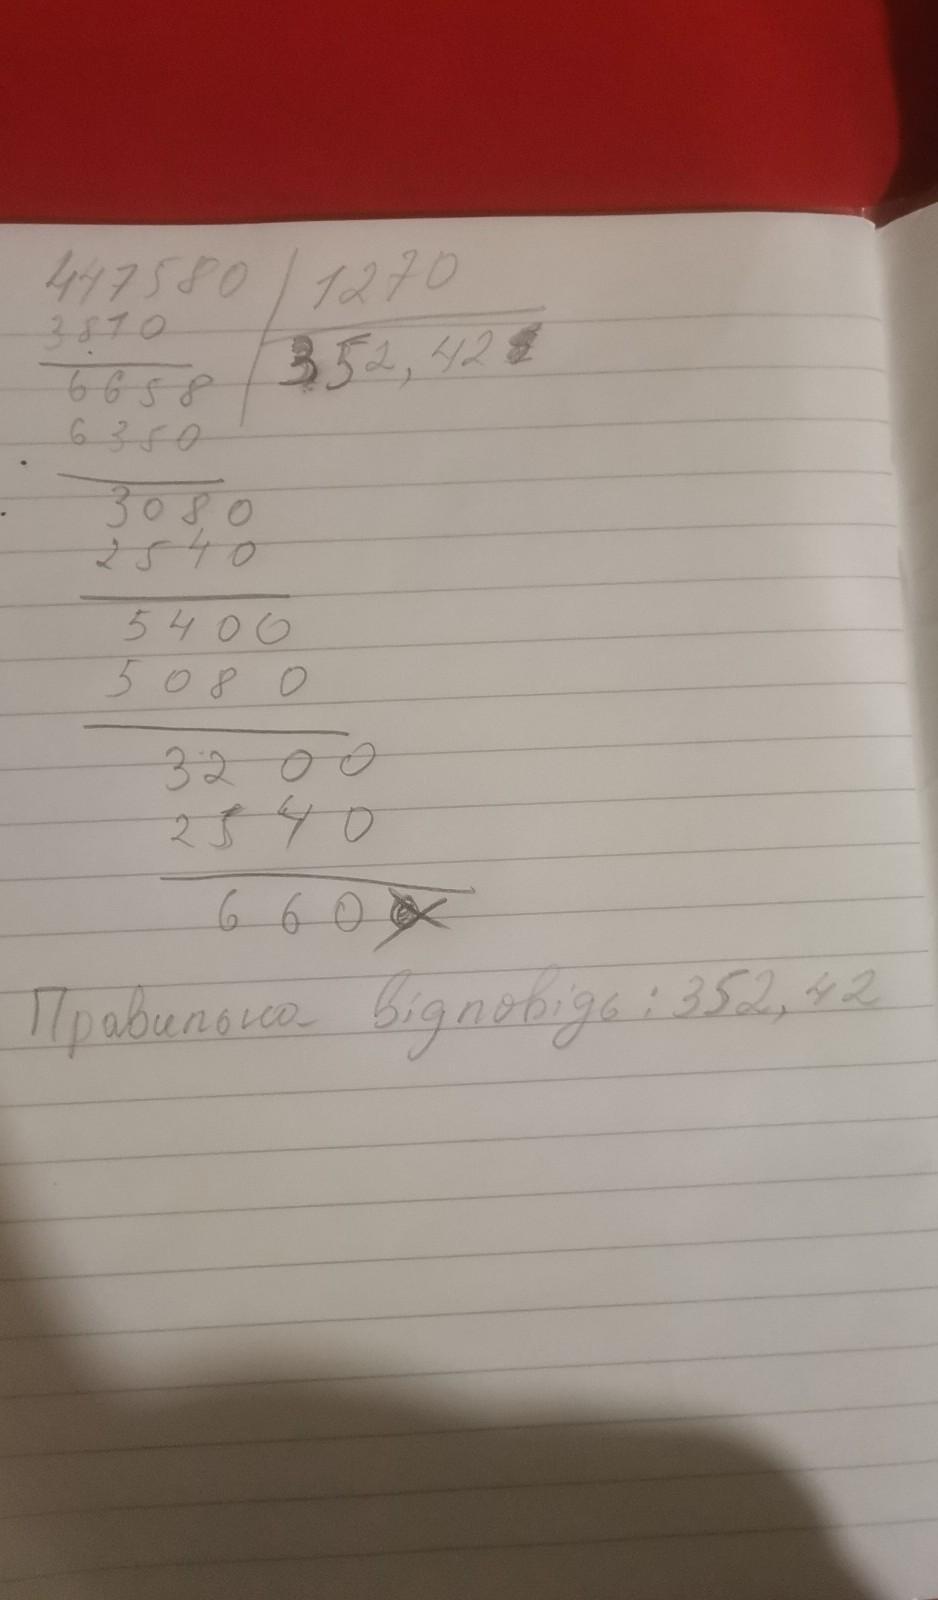 447580 | 1270
3810
352,42
6658
6350
3080
2540
5400
5080
3200
2540
660
Правильна відповідь: 352,42